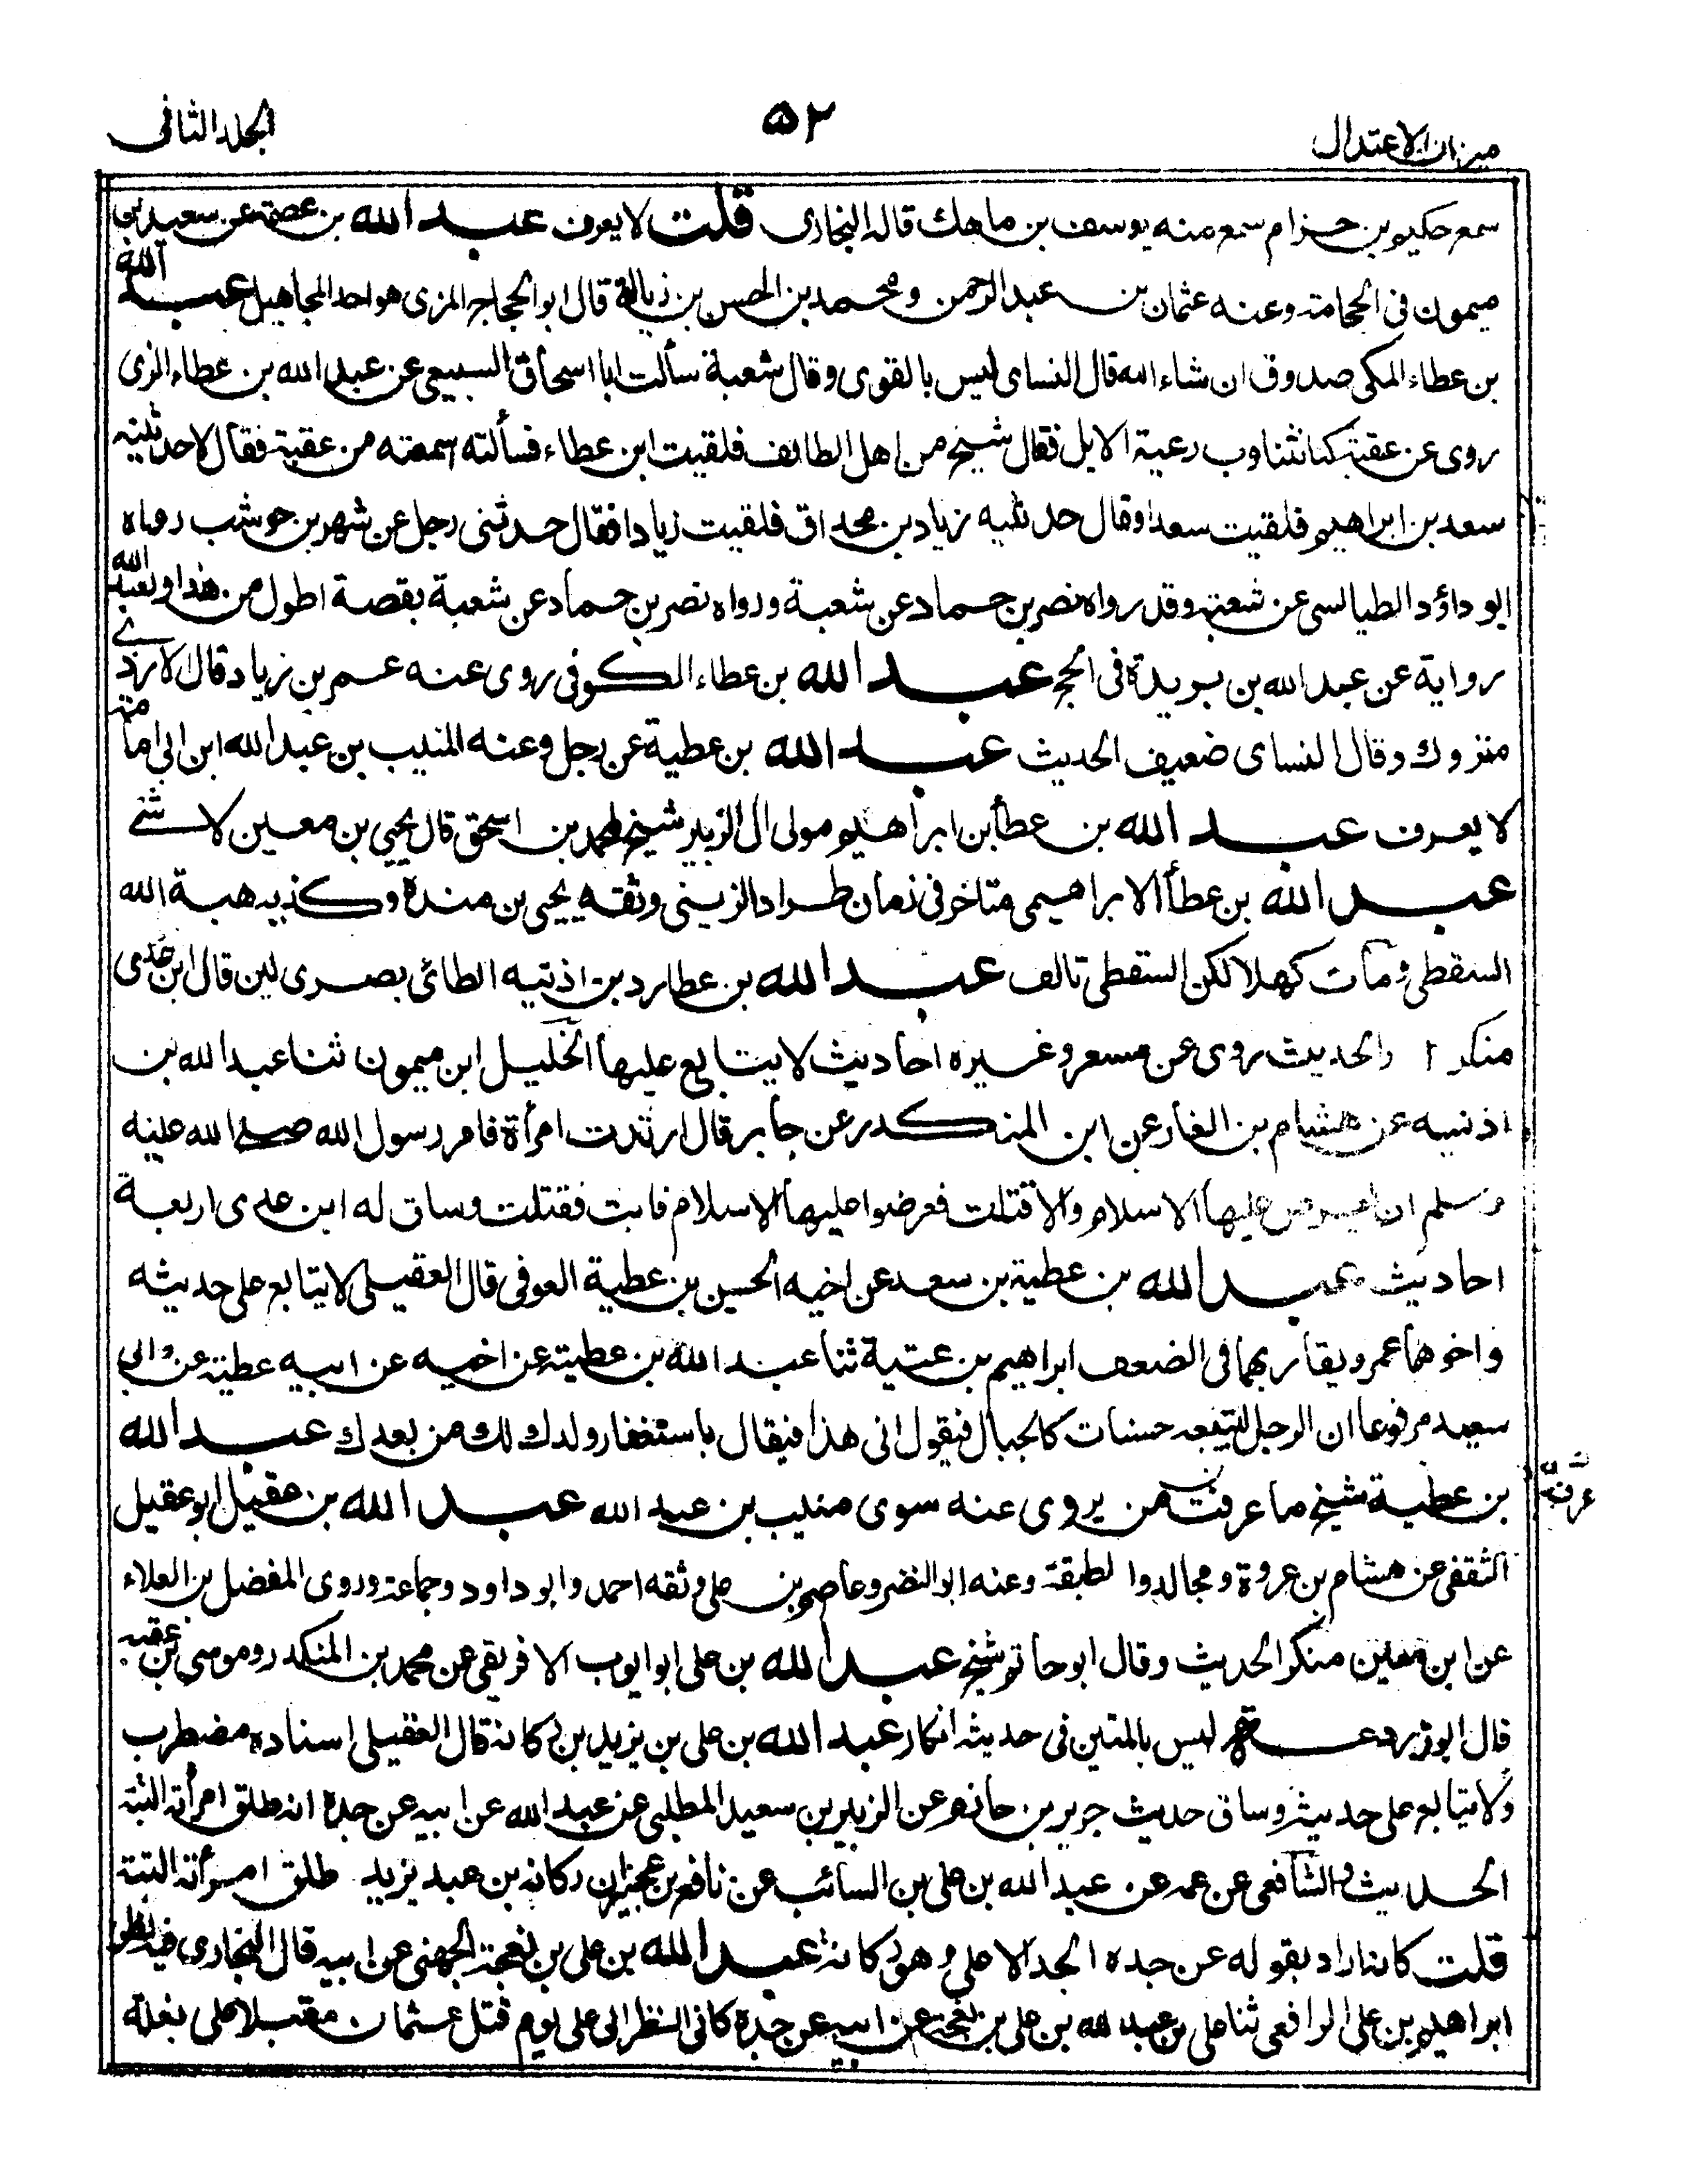 ميزان الاعتدال
٥٢
المجلد الثانى
سمع حكيم بن حزام سمع منه يوسف بن ماهك قاله البخارى قلت لا يعرف عبد الله بن عصمة عن سعيد بن
ميمون فى الحجامة وعنه عثمان بن عبد الرحمن ومحمد بن الحسن بن زبالة قال ابو الحجاج المزى هو احد المجاهيل عبد الله
بن عطاء المكى صدوق ان شاء الله قال النساى ليس بالقوى وقال شعبة سألت ابا اسحاق السبيعى عن عبد الله بن عطاء الذى
روى عن عقبة كنا نتناوب رعية الابل فقال شيخ من اهل الطايف فلقيت ابن عطاء فسألته اسمعته من عقبة فقال لا حدثنيه
سعد بن ابراهيم فلقيت سعدا وقال حدثنيه زياد بن مخراق فلقيت زيادا فقال حدثنى رجل عن شهر بن حوشب رواه
ابو داؤد الطيالسى عن شعبة وقد رواه نصر بن حماد عن شعبة ورواه نصر بن حماد عن شعبة بقصة اطول من هذا ولعبد الله
رواية عن عبد الله بن بريدة فى الحج عبد الله بن عطاء الكوفى روى عنه عمر بن زياد قال الازدے
متروك وقال النساى ضعيف الحديث عبد الله بن عطية عن رجل وعنه المنيب بن عبد الله ابن ابى امامة
لا يعرف عبد الله بن عطأ بن ابراهيم مولى ال الزبير شيخ لمحمد بن اسحق قال يحيى بن معين لا شئ
عبد الله بن عطأ الابراهيمى متاخر فى زمان طراد الزينبى وثقه يحيى بن مندة وكذبه هبة الله
السقطى ومات كهلا لكن السقطى تالف عبد الله بن عطارد بن اذنيه الطائى بصرى لين قال ابن عدى
منكر الحديث روى عن مسعر وغيره احاديث لا يتابع عليها الخليل ابن ميمون ثنا عبد الله بن
اذنيه عن هشام بن الغار عن ابن المنكدر عن جابر قال ارتدت امرأة فامر رسول الله صلى الله عليه
وسلم ان يعرض عليها الاسلام والا قتلت فعرضوا عليها الاسلام فابت فقتلت وساق له ابن عدى اربعة
احاديث عبد الله بن عطية بن سعد عن اخيه الحسين بن عطية العوفى قال العقيلى لا يتابع على حديثه
واخوهما عمرو يقاربهما فى الضعف ابراهيم بن عتية ثنا عبد الله بن عطية عن اخيه عن ابيه عطية عن ابى
سعيد مرفوعا ان الرجل لتتبعه حسنات كالجبال فيقول انى هذا فيقال باستغفار ولدك لك من بعدك عبد الله
بن عطية شيخ ما عرفت من يروى عنه سوى منيب بن عبد الله عبد الله بن عقيل ابو عقيل
الثقفى عن هشام بن عروة ومجالد والطبقة وعنه ابو النضر وعاصم بن على وثقه احمد وابو داود وجماعة وروى المفضل بن العلاء
عن ابن معين منكر الحديث وقال ابو حاتم شيخ عبد الله بن على ابو ايوب الافريقى عن محمد بن المنكدر وموسى بن عقبه
قال ابو زرعة ليس بالمتين فى حديثه انكار عبد الله بن على بن يزيد بن ركانة قال العقيلى اسناده مضطرب
ولا يتابع على حديثه وساق حديث جرير بن حازم عن الزبير بن سعيد المطلبى عن عبد الله عن ابيه عن جده انه طلق امرأته البتة
الحديث والشافعى عن عمه عن عبد الله بن على بن السائب عن نافع بن عجير ان ركانه بن عبد يزيد طلق امرأته البتة
قلت كانه اراد بقوله عن جده الجد الاعلى وهو ركانة عبد الله بن على بن نعجة الجهنى عن ابيه قال البخارى فيه نظر
ابراهيم بن على الرافعى ثنا على بن عبد الله بن على بن نعجة عن ابيه عن جده كانى انظر الى على يوم قتل عثمان مقبلا على بغلة